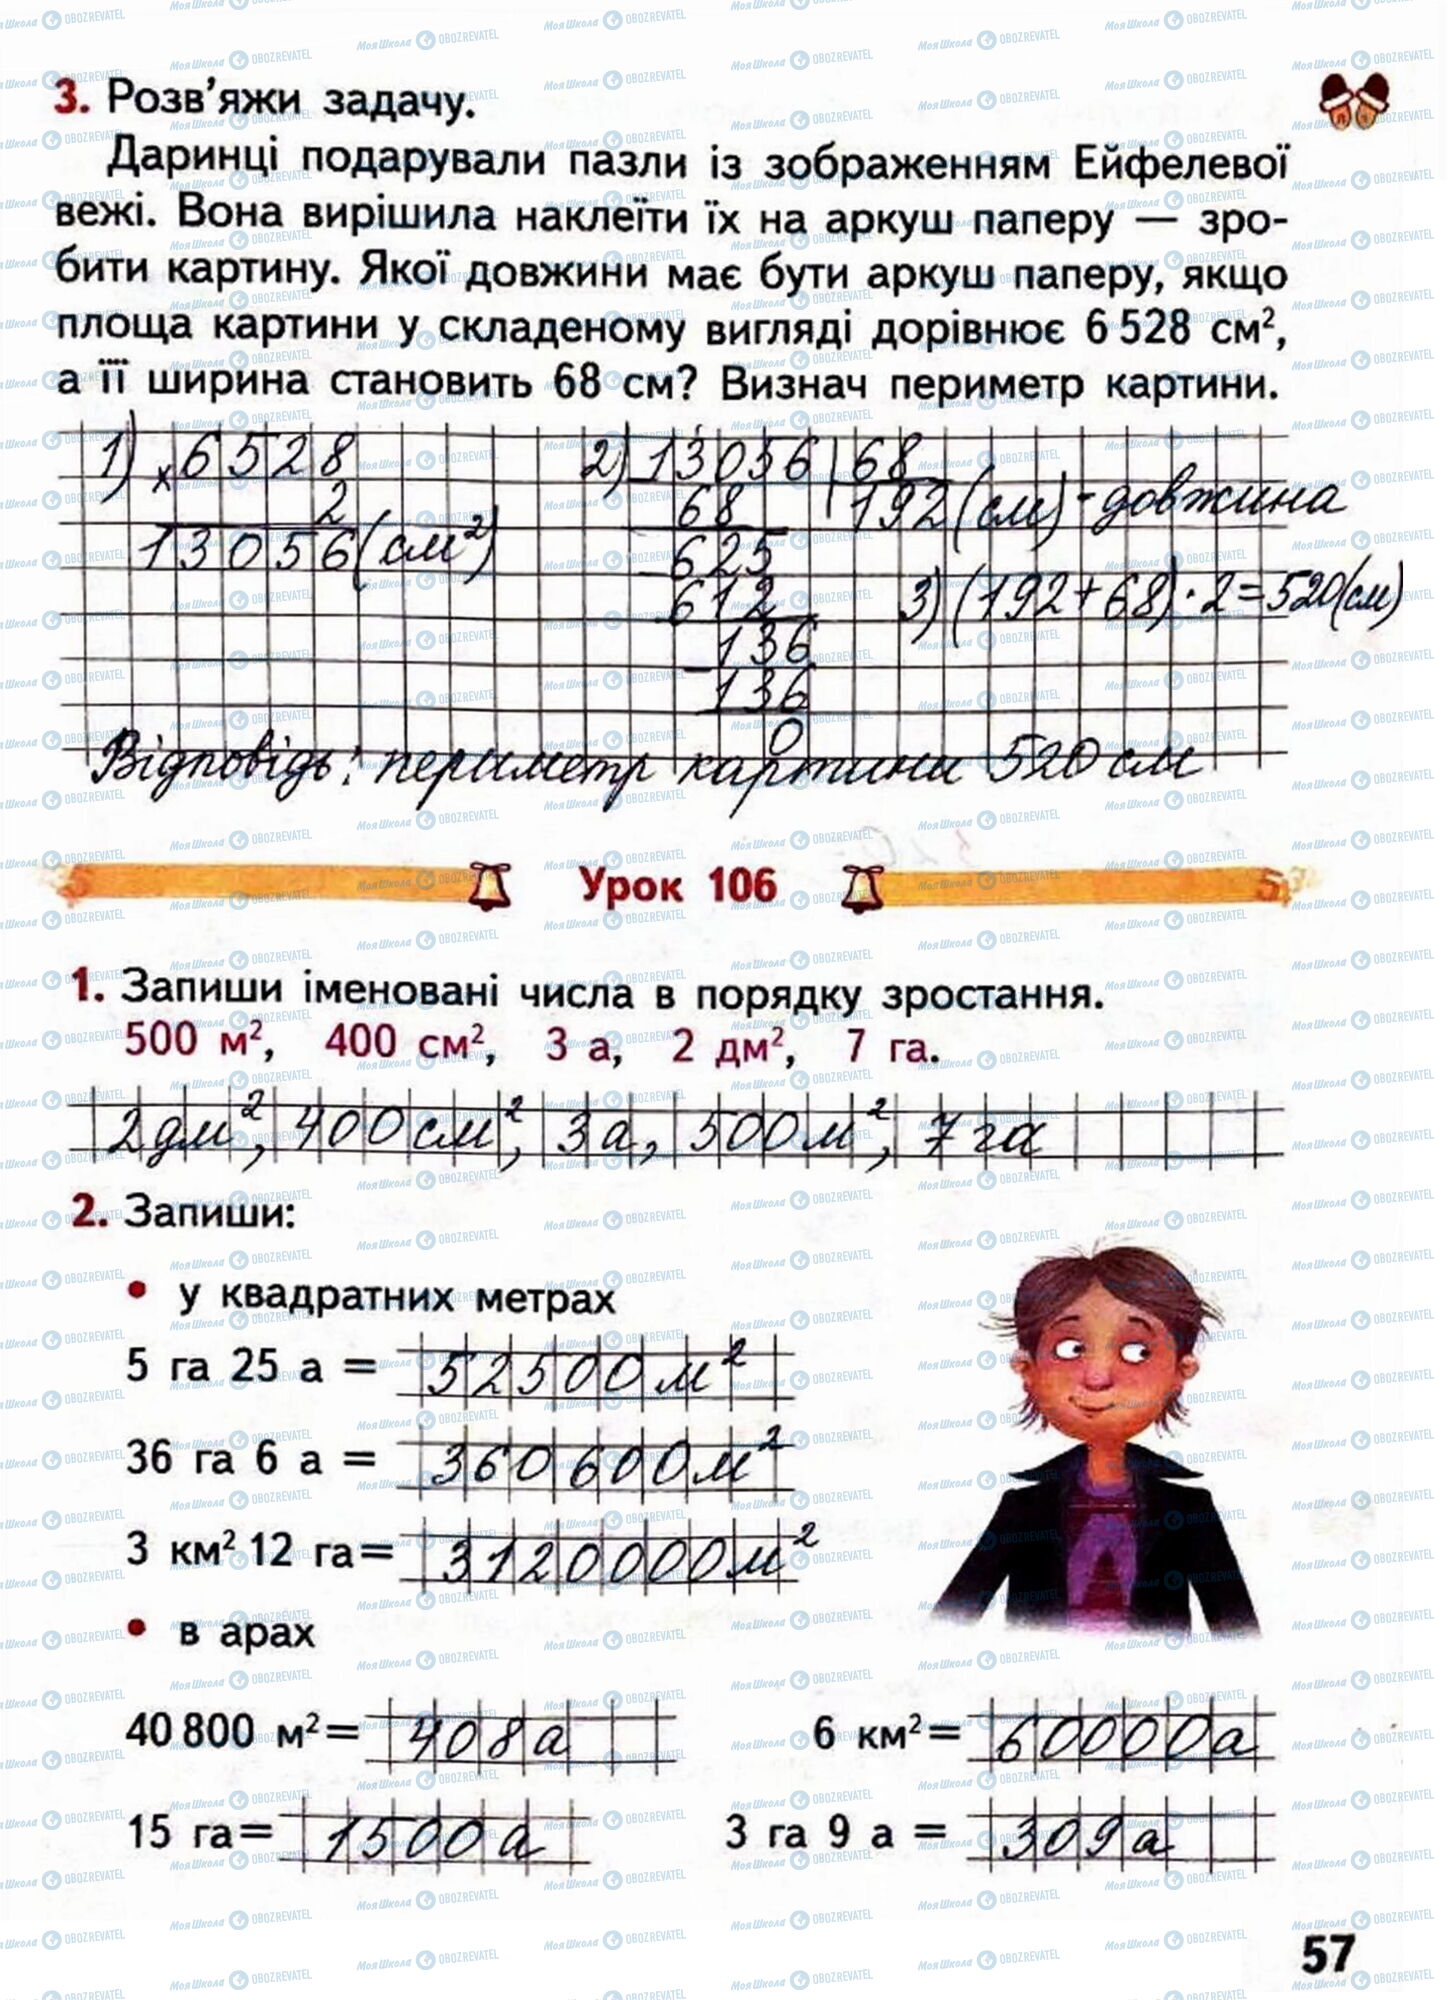 3. Розв'яжи задачу.
Даринці подарували пазли із зображенням Ейфелевої
вежі. Вона вирішила наклеїти їх на аркуш паперу — зро-
бити картину. Якої довжини має бути аркуш паперу, якщо
площа картини у складеному вигляді дорівнює 6 528 см²,
а її ширина становить 68 см? Визнач периметр картини.
1) × 6528
2
13056 (см²)
2) 13056 | 68
68 192 (см) - довжина
625
612
136
136
0
3) (192 + 68) · 2 = 520 (см)
Відповідь: периметр картини 520 см
Урок 106
1. Запиши іменовані числа в порядку зростання.
500 м², 400 см², 3 а, 2 дм², 7 га.
2 дм², 400 см², 3 а, 500 м², 7 га
2. Запиши:
• у квадратних метрах
5 га 25 а = 52500 м²
36 га 6 а = 360600 м²
3 км² 12 га = 3120000 м²
• в арах
40 800 м² = 408 а 6 км² = 60000 а
15 га = 1500 а 3 га 9 а = 309 а
57
МояШкола OBOZREVATEL